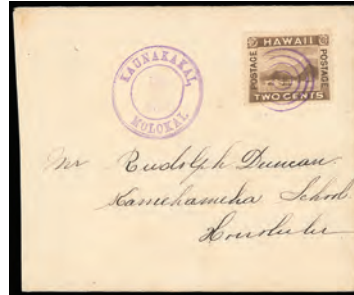 KAUNAKAKAI,
MOLOKAI.
HAWAII
POSTAGE
POSTAGE
TWO CENTS
Mr Rudolph Duncan
Kamehameha School
Honolulu